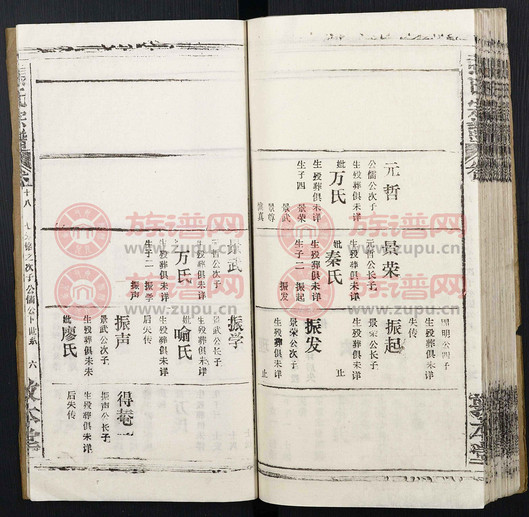 元哲
公儒公次子
生殁葬俱未详
妣万氏
生殁葬俱未详
生子四 景荣
景武
景尊
惟真
景荣
元哲公长子
生殁葬俱未详
妣秦氏
生殁葬俱未详
生子二 振起
振发
明公四子
生殁葬俱未详
失传
振起
景荣公长子
生殁葬俱未详
止
振发
景荣公次子
生殁葬俱未详
止
景武
元哲公次子
生殁葬俱未详
妣万氏
生殁葬俱未详
生子二 振学
振声
振学
景武公长子
生殁葬俱未详
妣喻氏
生殁葬俱未详
后失传
振声
景武公次子
生殁葬俱未详
妣廖氏
生殁葬俱未详
得菴一
振声公长子
生殁葬俱未详
妣万氏
生殁葬俱未详
后失传
次子公儒公下世系 六
族谱网
www.zupu.cn